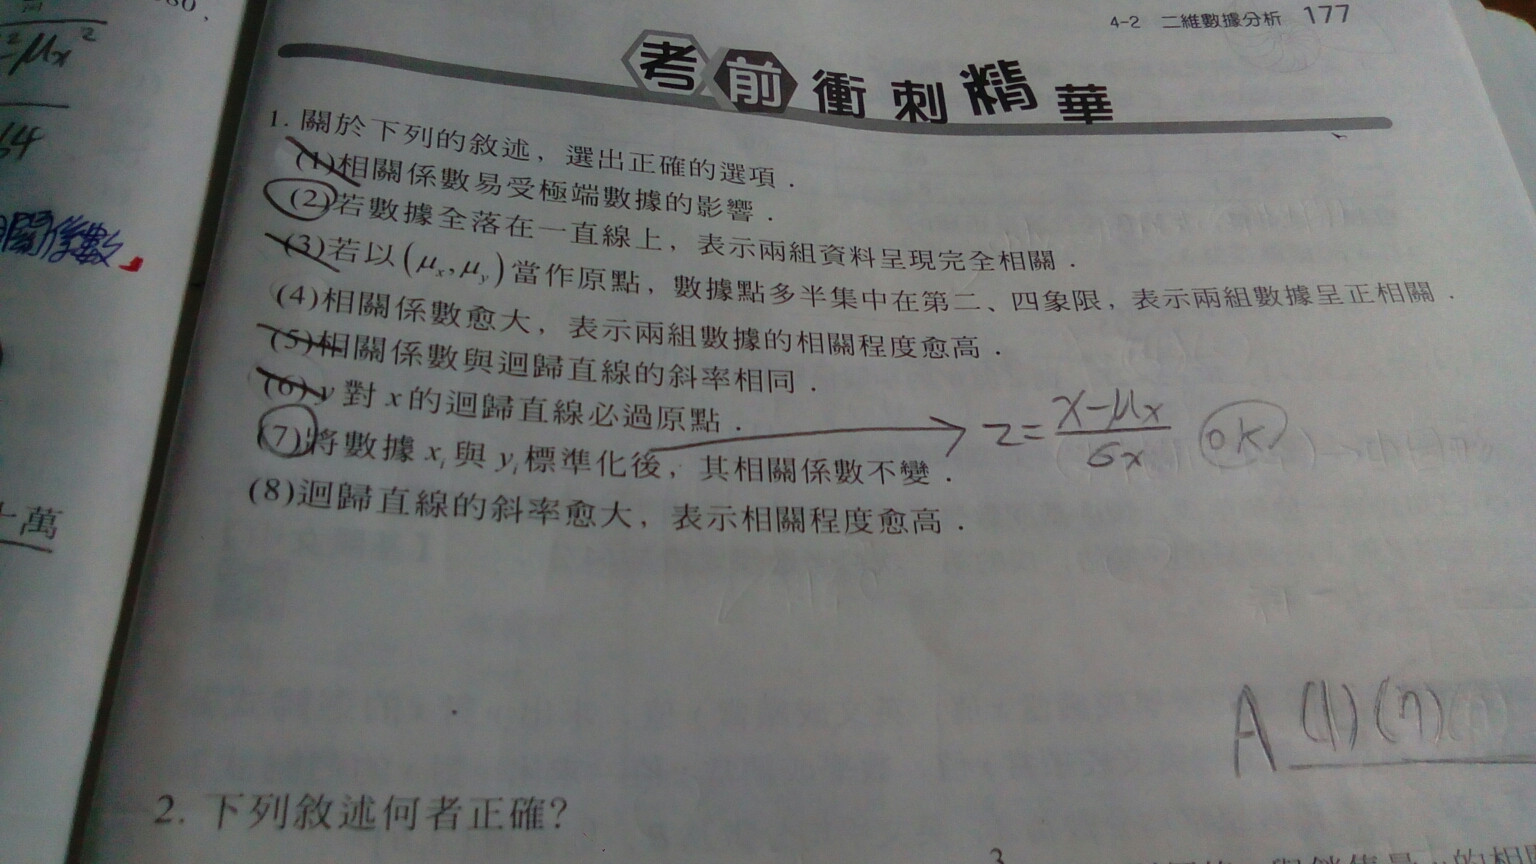 4-2 二維數據分析 177
考前衝刺精華
μx²
64
關係數
十萬
1. 關於下列的敘述，選出正確的選項．
(1)相關係數易受極端數據的影響．
(2)若數據全落在一直線上，表示兩組資料呈現完全相關．
(3)若以(μx,μy)當作原點，數據點多半集中在第二、四象限，表示兩組數據呈正相關．
(4)相關係數愈大，表示兩組數據的相關程度愈高．
(5)相關係數與迴歸直線的斜率相同．
(6) y對x的迴歸直線必過原點．
(7)將數據xi與yi標準化後，其相關係數不變．
z=(x-μx)/σx OK
(8)迴歸直線的斜率愈大，表示相關程度愈高．
A (1)(7)
2. 下列敘述何者正確?
3